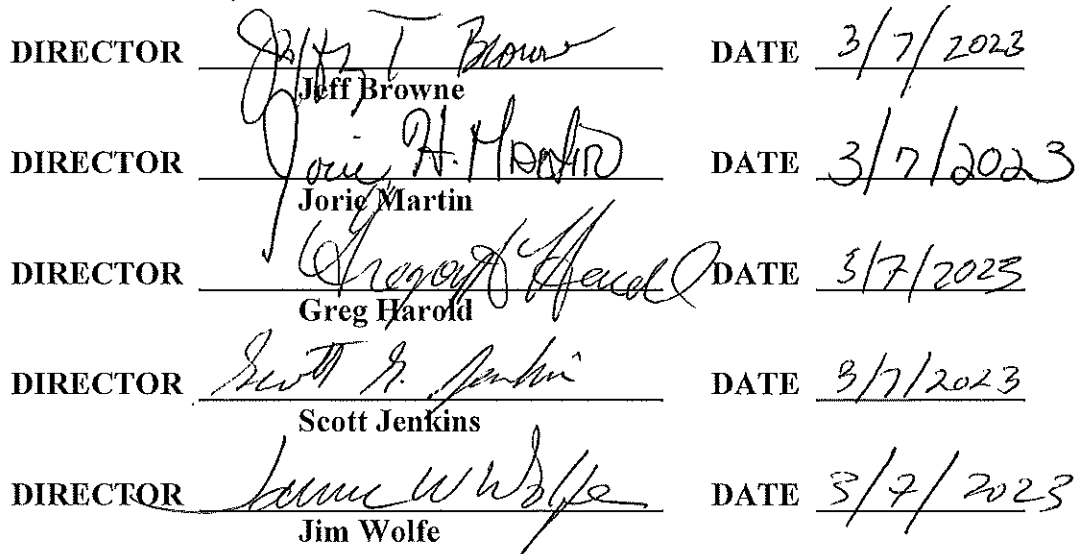 DIRECTOR Jeffrey T Browne DATE 3/7/2023
Jeff Browne
DIRECTOR Jorie H. Martin DATE 3/7/2023
Jorie Martin
DIRECTOR Gregory H Harold DATE 3/7/2023
Greg Harold
DIRECTOR Scott G. Jenkins DATE 3/7/2023
Scott Jenkins
DIRECTOR James W Wolfe DATE 3/7/2023
Jim Wolfe